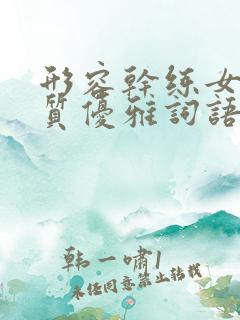 形容幹练女
質優雅詞語
韩一啸1
未经同意禁止转载